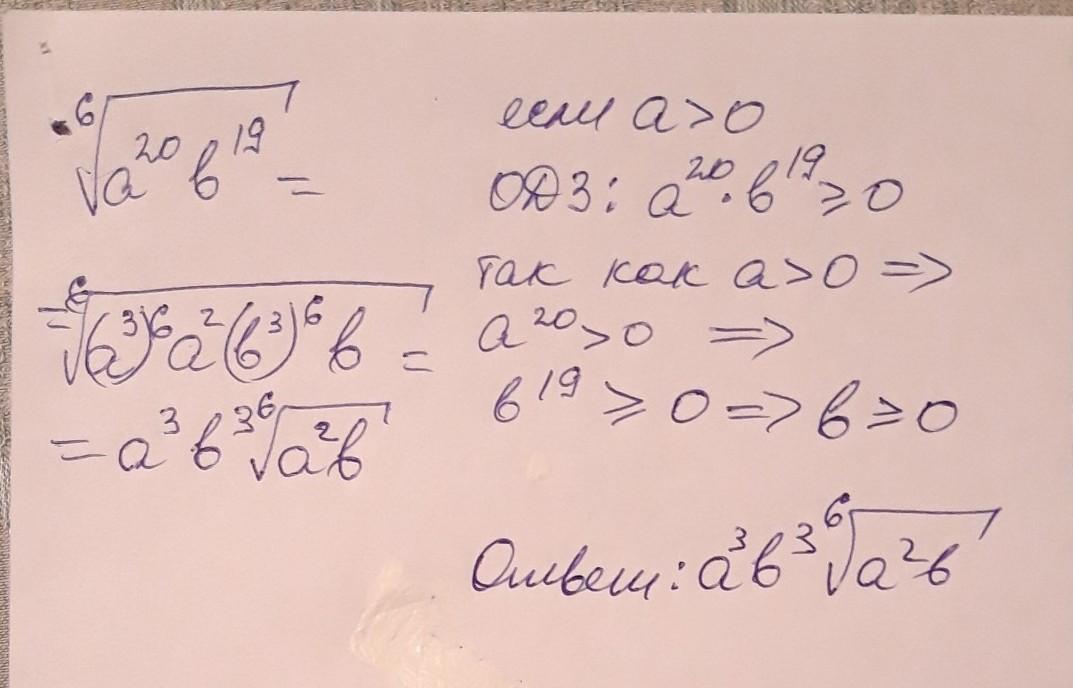 ⁶√(a²⁰ b¹⁹) =
= ⁶√((a³)⁶ a² (b³)⁶ b) =
= a³ b³ ⁶√(a²b)
если a > 0
ОДЗ: a²⁰ · b¹⁹ ≥ 0
так как a > 0 =>
a²⁰ > 0 =>
b¹⁹ ≥ 0 => b ≥ 0
Ответ: a³b³ ⁶√(a²b)